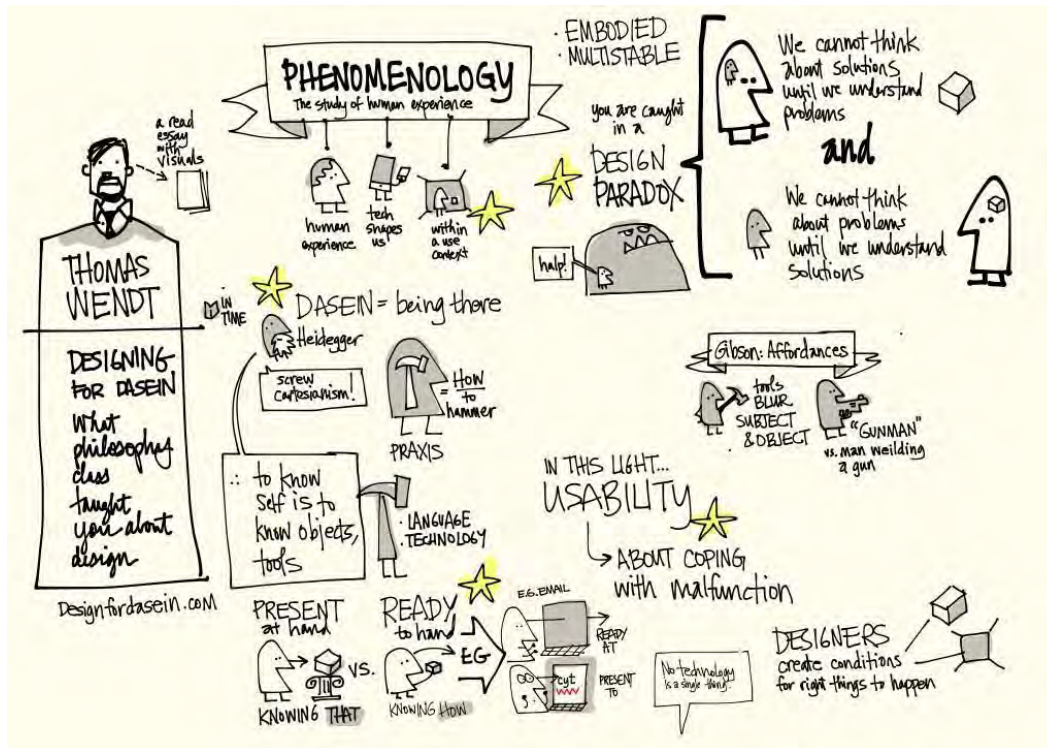 a read
essay
with
visuals
THOMAS
WENDT
DESIGNING
FOR DASEIN
What
philosophy
class
taught
you about
design
Designfordasein.com
PHENOMENOLOGY
The study of human experience
human
experience
tech
shapes
us
within
a use
context
· EMBODIED
· MULTISTABLE
you are caught
in a
DESIGN
PARADOX
halp!
We cannot think
about solutions
until we understand
problems
and
We cannot think
about problems
until we understand
solutions
IN
TIME
DASEIN = being there
Heidegger
screw
cartesianism!
= HOW
to
hammer
PRAXIS
∴ to know
self is to
know objects,
tools
· LANGUAGE
· TECHNOLOGY
Gibson: Affordances
tools
BLUR
SUBJECT
& OBJECT
"GUNMAN"
vs. man weilding
a gun
IN THIS LIGHT...
USABILITY
ABOUT COPING
with malfunction
PRESENT
at hand
VS.
KNOWING THAT
READY
to hand
KNOWING HOW
EG
E.G. EMAIL
READY
AT
cyt
PRESENT
TO
No technology
is a single thing.
DESIGNERS
create conditions
for right things to happen